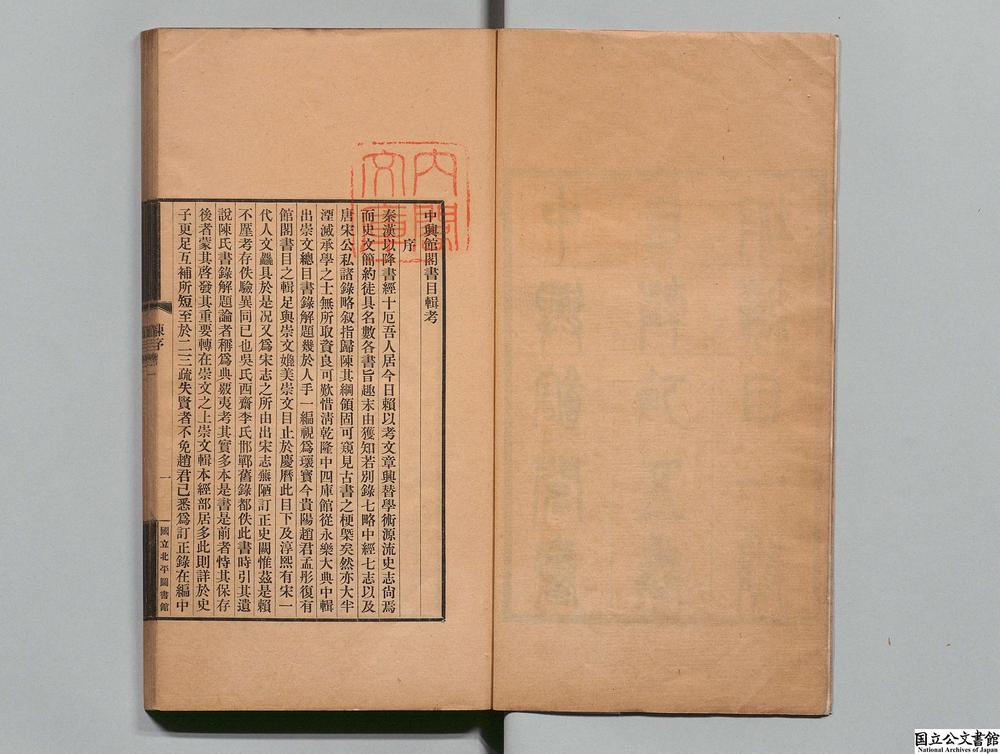 中興館閣書目輯考
序
秦漢以降書經十厄吾人居今日賴以考文章興替學術源流史志尙焉
而史文簡約徒具名數各書旨趣末由獲知若別錄七略中經七志以及
唐宋公私諸錄略叙指歸陳其綱領固可窺見古書之梗槩矣然亦大半
湮滅承學之士無所取資良可歎惜淸乾隆中四庫館從永樂大典中輯
出崇文總目書錄解題幾於人手一編視爲瓌寶今貴陽趙君孟彤復有
館閣書目之輯足與崇文媲美崇文目止於慶曆此目下及淳熙有宋一
代人文麤具於是况又爲宋志之所由出宋志蕪陋訂正史闕惟茲是賴
不啻考存佚驗異同已也吳氏西齋李氏邯鄲舊錄都佚此書時引其遺
說陳氏書錄解題論者稱爲典覈夷考其實多本是書是前者恃其保存
後者蒙其啓發其重要轉在崇文之上崇文輯本經部居多此則詳於史
子更足互補所短至於二三疏失賢者不免趙君已悉爲訂正錄在編中
陳序
一
國立北平圖書館
內閣文庫
国立公文書館
National Archives of Japan